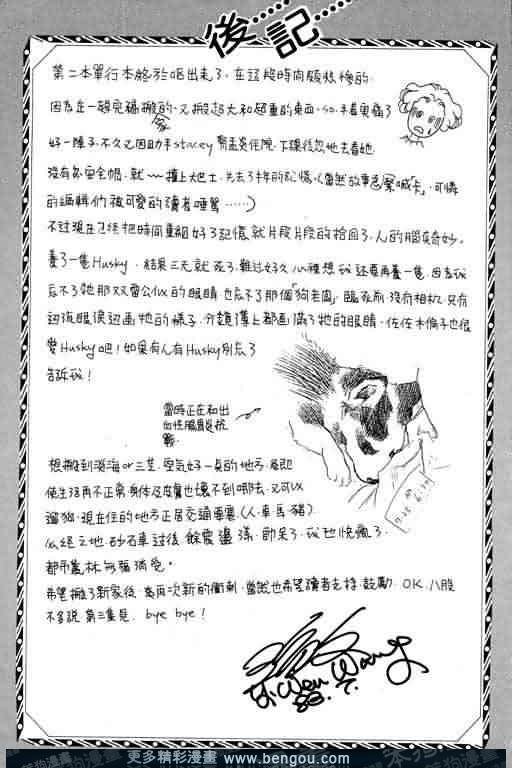 後記
第二本單行本終於咀出走了。在這段時間頗悽慘的。
因為在一韓完稿搬的、又搬超大和超重的東西。so.手看電痛了
家
好一陣子。不久又因助手stacey 住院，下課後忽地去看她
沒有戴安全帽，就～～撞上大巴士。失去了半年的記憶，(當然故事急緊喊「卡」，可憐
的編輯們被可愛的讀者唾罵……)
不過現在已經把時間重組好了記憶就片段片段的拾回了。人的腦真奇妙。
養了一隻Husky，結果三天就死了。難过好久心裡想說還要再養一隻，因為說
忘不了牠那双雷公似的眼睛，也忘不了那個「狗老闆」，臨死前，沒有相机。只有
邊流眼淚邊画牠的樣子，分鏡簿上都画滿了牠的眼睛。佐佐木倫子也很
愛Husky吧！如果有人有Husky別忘了
告訴我！
當時正在和出
血性腸胃炎抗
戰。
想搬到淡海or三芝，空氣好一點的地方，儘即
使生活再不正常身体及皮膚也壞不到哪去，又可以
遛狗。現在住的地方正居交通要衝(人、車、馬、豬)
必經之地，砂石車过後，餘震盪漾，鄙呆了。我也快瘋了。
都市叢林
希望搬了新家後，為再次新的衝刺，當然也希望讀者支持、鼓勵。OK，八股
不多說 第三集見。bye bye！
Yi Wen Wang
88. 7.
更多精彩漫畫 www.bengou.com